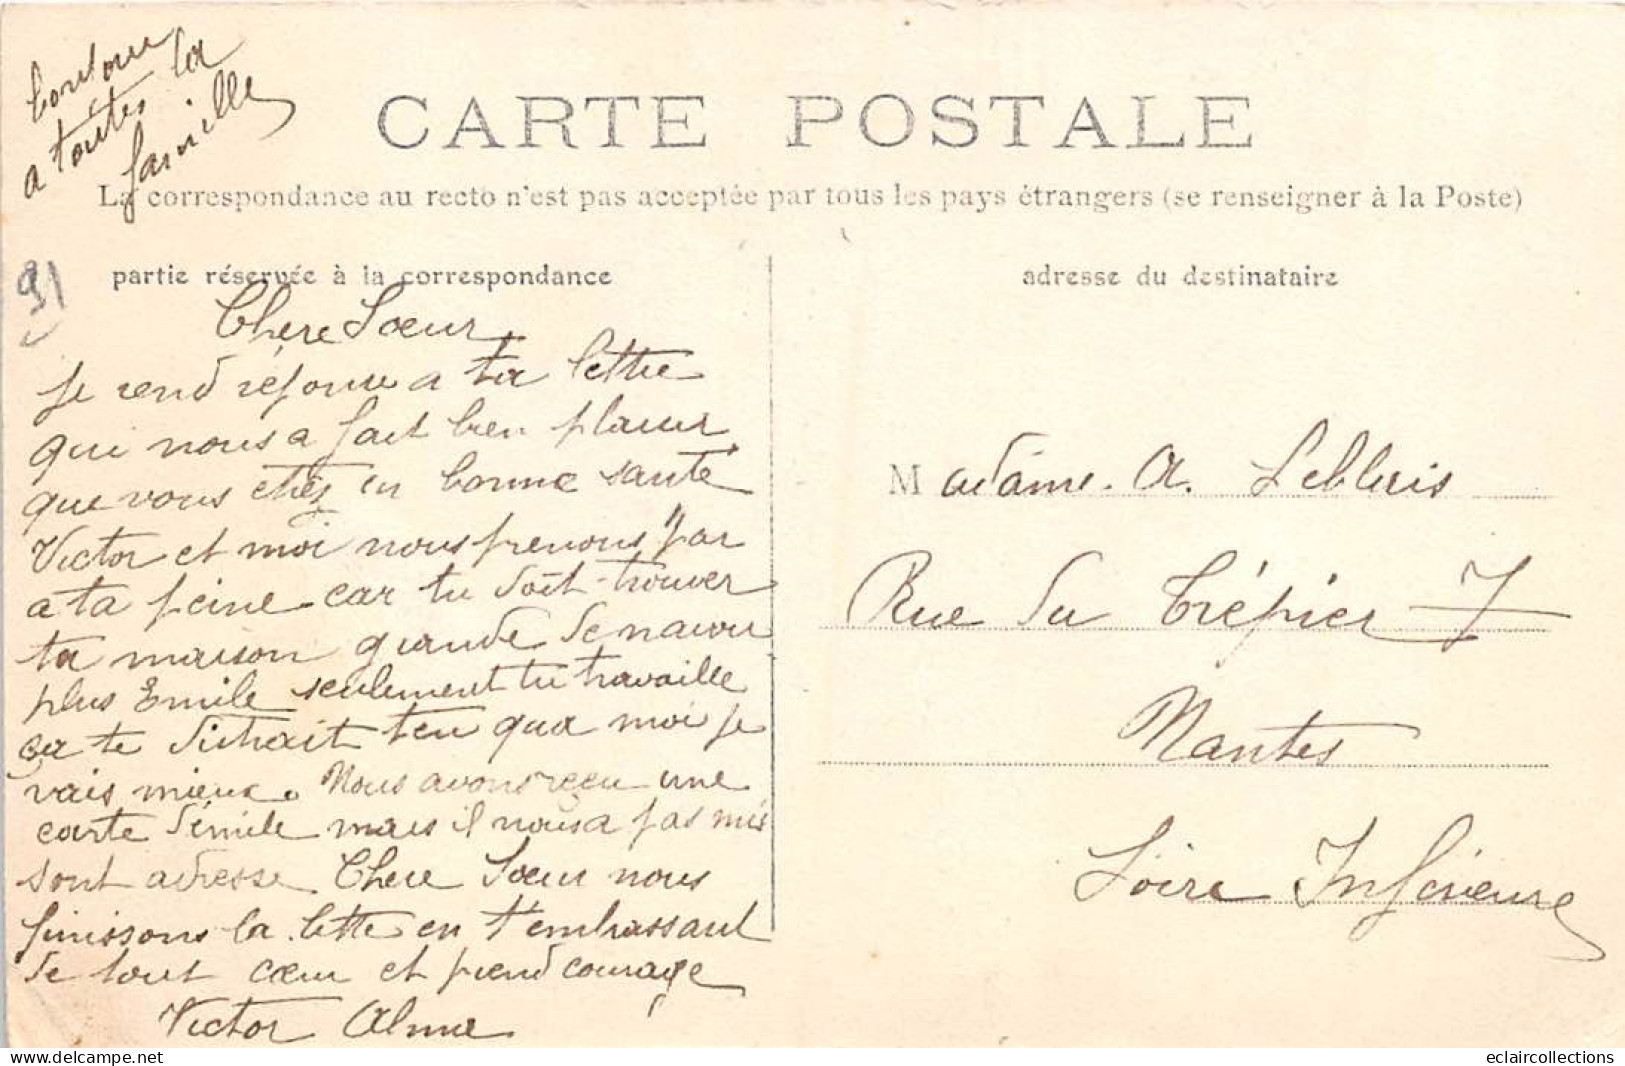 bonjour
a toutes la
famille
CARTE POSTALE
La correspondance au recto n'est pas acceptée par tous les pays étrangers (se renseigner à la Poste)
91
partie réservée à la correspondance
Chere Sœur
Je rend réponse a ta lettre
qui nous a fait bien plaisir
que vous etes en bonne santé
Victor et moi nous prenons par
a ta peine car tu doit trouver
ta maison grande de navoir
plus Emile seulement tu travaille
ça te distrait ten qua moi je
vais mieux. Nous avons reçu une
carte démile mais il nous a pas mis
sont adresse Chere Sœur nous
finissons la lettre en t'embrassant
de tout cœur et prend courage
Victor
adresse du destinataire
Madame. A.
Rue du Trépier 7
Nantes
Loire Inférieure
eclaircollections